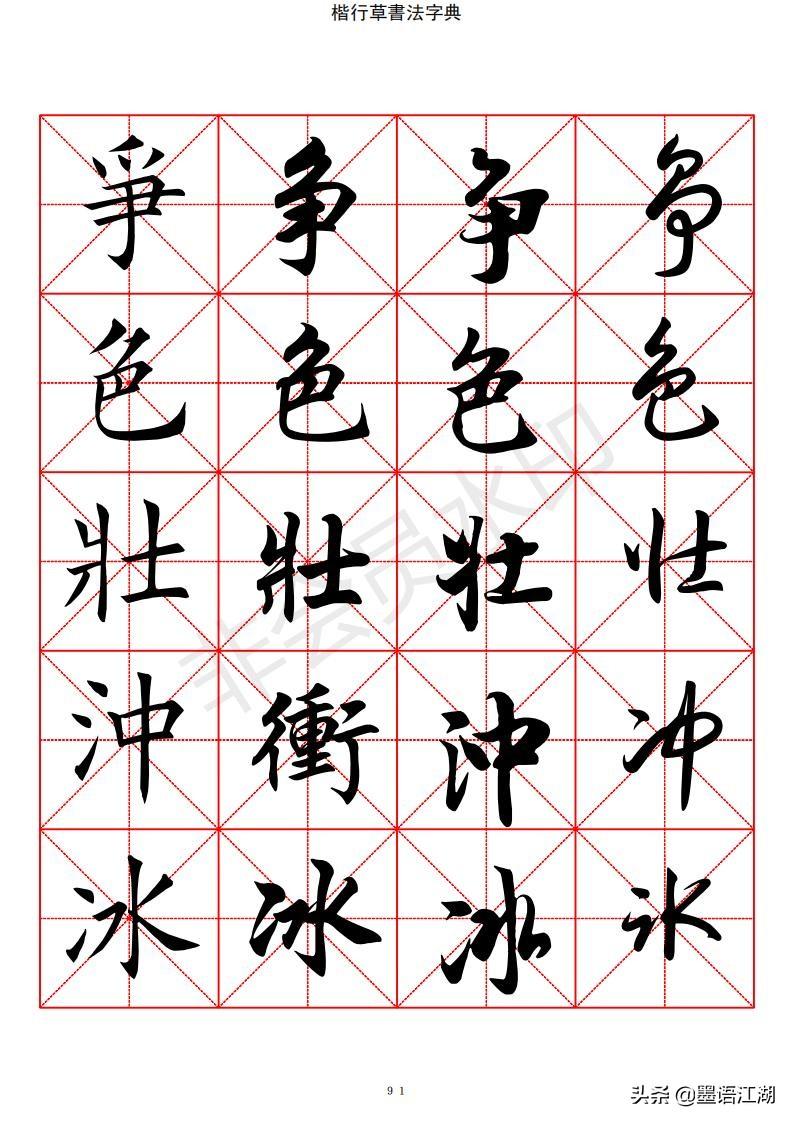 楷行草書法字典
爭 争 争 争
色 色 色 色
壯 壯 壮 壮
沖 衝 沖 冲
冰 冰 冰 冰
非会员水印
91
头条 @墨语江湖